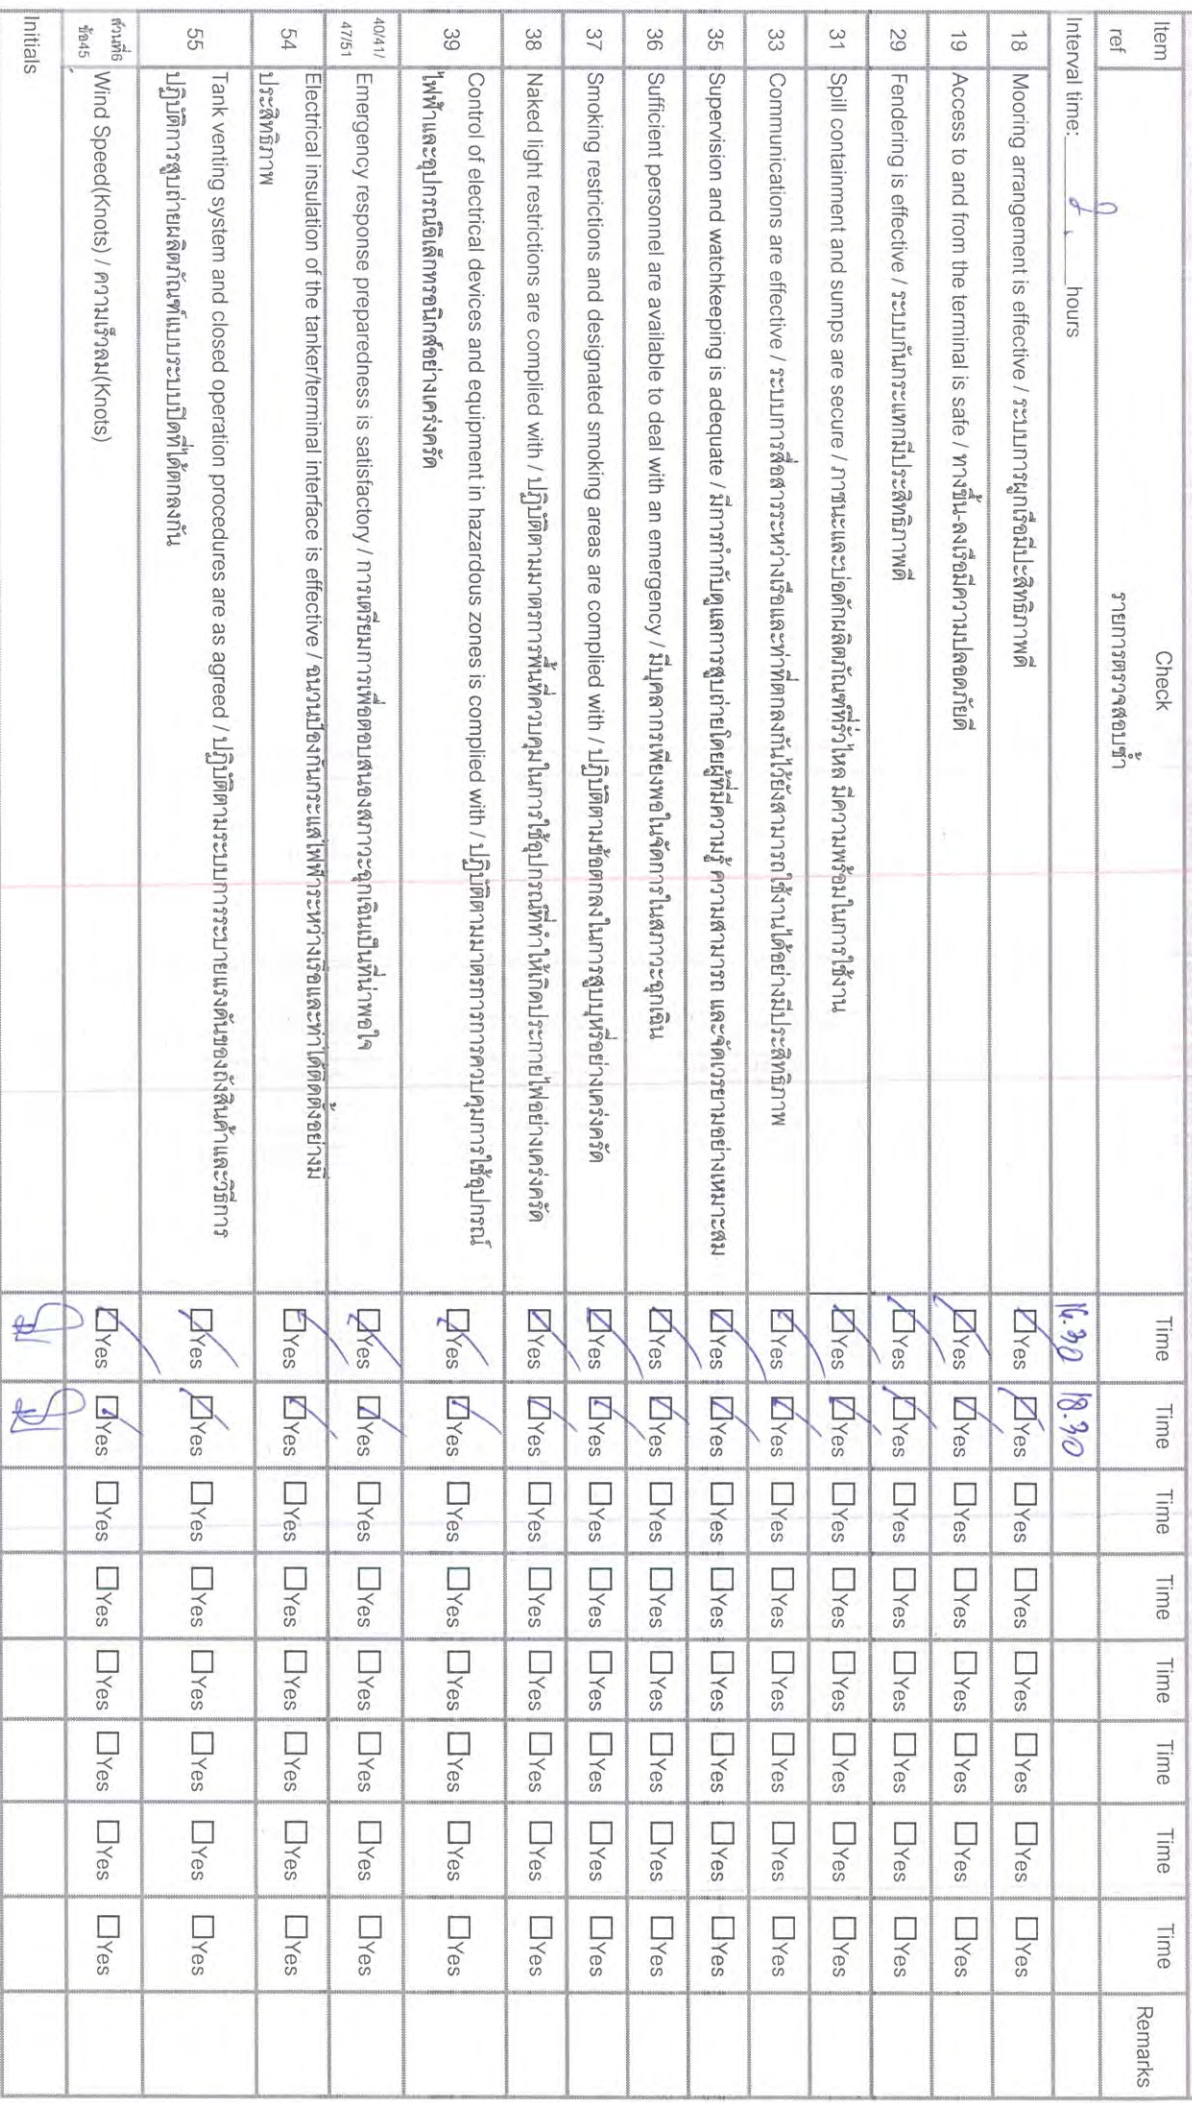 Item ref Check รายการตรวจสอบซ้ำ Time Time Time Time Time Time Time Time Remarks
Interval time: 2 hours 16.30 18.30
18 Mooring arrangement is effective / ระบบการผูกเรือมีปะสิทธิภาพดี ☑Yes ☑Yes ☐Yes ☐Yes ☐Yes ☐Yes ☐Yes ☐Yes
19 Access to and from the terminal is safe / ทางขึ้น-ลงเรือมีความปลอดภัยดี ☑Yes ☑Yes ☐Yes ☐Yes ☐Yes ☐Yes ☐Yes ☐Yes
29 Fendering is effective / ระบบกันกระแทกมีประสิทธิภาพดี ☑Yes ☑Yes ☐Yes ☐Yes ☐Yes ☐Yes ☐Yes ☐Yes
31 Spill containment and sumps are secure / ภาชนะและบ่อดักผลิตภัณฑ์ที่รั่วไหล มีความพร้อมในการใช้งาน ☑Yes ☑Yes ☐Yes ☐Yes ☐Yes ☐Yes ☐Yes ☐Yes
33 Communications are effective / ระบบการสื่อสารระหว่างเรือและท่าที่ตกลงกันไว้ยังสามารถใช้งานได้อย่างมีประสิทธิภาพ ☑Yes ☑Yes ☐Yes ☐Yes ☐Yes ☐Yes ☐Yes ☐Yes
35 Supervision and watchkeeping is adequate / มีการกำกับดูแลการสูบถ่ายโดยผู้ที่มีความรู้ ความสามารถ และจัดเวรยามอย่างเหมาะสม ☑Yes ☑Yes ☐Yes ☐Yes ☐Yes ☐Yes ☐Yes ☐Yes
36 Sufficient personnel are available to deal with an emergency / มีบุคลากรเพียงพอในจัดการในสภาวะฉุกเฉิน ☑Yes ☑Yes ☐Yes ☐Yes ☐Yes ☐Yes ☐Yes ☐Yes
37 Smoking restrictions and designated smoking areas are complied with / ปฏิบัติตามข้อตกลงในการสูบบุหรี่อย่างเคร่งครัด ☑Yes ☑Yes ☐Yes ☐Yes ☐Yes ☐Yes ☐Yes ☐Yes
38 Naked light restrictions are complied with / ปฏิบัติตามมาตรการพื้นที่ควบคุมในการใช้อุปกรณ์ที่ทำให้เกิดประกายไฟอย่างเคร่งครัด ☑Yes ☑Yes ☐Yes ☐Yes ☐Yes ☐Yes ☐Yes ☐Yes
39 Control of electrical devices and equipment in hazardous zones is complied with / ปฏิบัติตามมาตรการการควบคุมการใช้อุปกรณ์
ไฟฟ้าและอุปกรณ์อิเล็กทรอนิกส์อย่างเคร่งครัด ☑Yes ☑Yes ☐Yes ☐Yes ☐Yes ☐Yes ☐Yes ☐Yes
40/41/
47/51 Emergency response preparedness is satisfactory / การเตรียมการเพื่อตอบสนองสภาวะฉุกเฉินเป็นที่น่าพอใจ ☑Yes ☑Yes ☐Yes ☐Yes ☐Yes ☐Yes ☐Yes ☐Yes
54 Electrical insulation of the tanker/terminal interface is effective / ฉนวนป้องกันกระแสไฟฟ้าระหว่างเรือและท่าได้ติดตั้งอย่างมี
ประสิทธิภาพ ☑Yes ☑Yes ☐Yes ☐Yes ☐Yes ☐Yes ☐Yes ☐Yes
55 Tank venting system and closed operation procedures are as agreed / ปฏิบัติตามระบบการระบายแรงดันของถังสินค้าและวิธีการ
ปฏิบัติการสูบถ่ายผลิตภัณฑ์แบบระบบปิดที่ได้ตกลงกัน ☑Yes ☑Yes ☐Yes ☐Yes ☐Yes ☐Yes ☐Yes ☐Yes
ส่วนที่6
ข้อ45 Wind Speed(Knots) / ความเร็วลม(Knots) ☑Yes ☑Yes ☐Yes ☐Yes ☐Yes ☐Yes ☐Yes ☐Yes
Initials